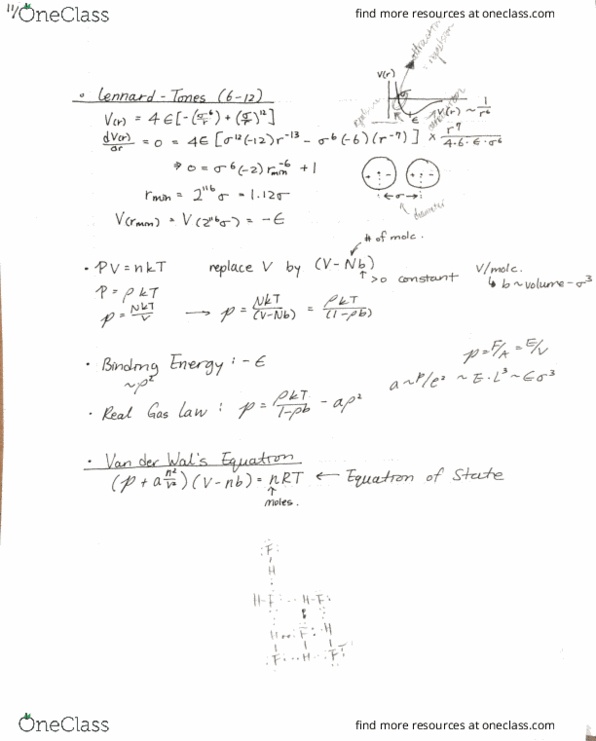 11/
OneClass
find more resources at oneclass.com
• Lennard-Jones (6-12)
V(r) = 4ϵ[-(σ/r)⁶ + (σ/r)¹²]
dV(r)/dr = 0 = 4ϵ[σ¹²(-12)r⁻¹³ - σ⁶(-6)(r⁻⁷)] × r⁷/4·6·ϵ·σ⁶
⇒ 0 = σ⁶(-2)r_min⁻⁶ + 1
r_min = 2^(1/6)σ = 1.12σ
V(r_min) = V(2^(1/6)σ) = -ϵ
V(r)
attraction
repulsion
σ
ϵ
V(r) ~ 1/r⁶
← σ →
diameter
# of molc.
• PV = nkT replace V by (V-Nb)
>0 constant V/molc.
↳ b ~ volume - σ³
P = ρkT
p = NkT/V → p = NkT/(V-Nb) = ρkT/(1-ρb)
• Binding Energy : -ϵ
~ρ²
p = F/A = E/V
a ~ P/ρ² ~ E·L³ ~ ϵσ³
• Real Gas law : p = ρkT/1-ρb - aρ²
• Van der Wal's Equation
(p + a n²/V²)(V-nb) = nRT ← Equation of State
↑
moles.
:F:
H
H-F: ... H-F:
H ... F: -H
:F: ... H-F:
OneClass
find more resources at oneclass.com